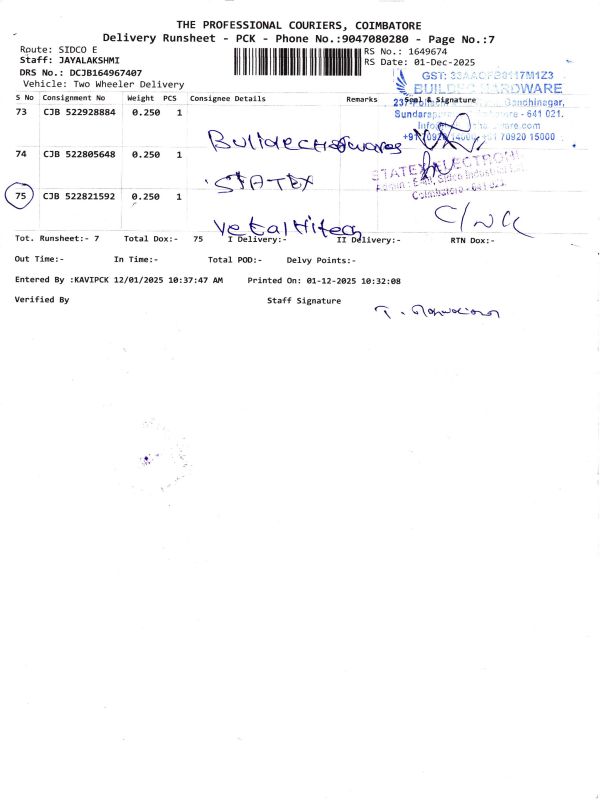 THE PROFESSIONAL COURIERS, COIMBATORE
Delivery Runsheet - PCK - Phone No.:9047080280 - Page No.:7
Route: SIDCO E
RS No.: 1649674
Staff: JAYALAKSHMI
RS Date: 01-Dec-2025
DRS No.: DCJB164967407
Vehicle: Two Wheeler Delivery
S No Consignment No Weight PCS Consignee Details Remarks Seal & Signature
BUILDEC HARDWARE
Gandhinagar,
641 021.
70920 15000
73 CJB 522928884 0.250 1
74 CJB 522805648 0.250 1 STATEX
STATEX ELECTRONI
Coimbatore - 641 021
75 CJB 522821592 0.250 1
Tot. Runsheet:- 7 Total Dox:- 75 I Delivery:- II Delivery:- RTN Dox:-
Out Time:- In Time:- Total POD:- Delvy Points:-
Entered By :KAVIPCK 12/01/2025 10:37:47 AM Printed On: 01-12-2025 10:32:08
Verified By Staff Signature